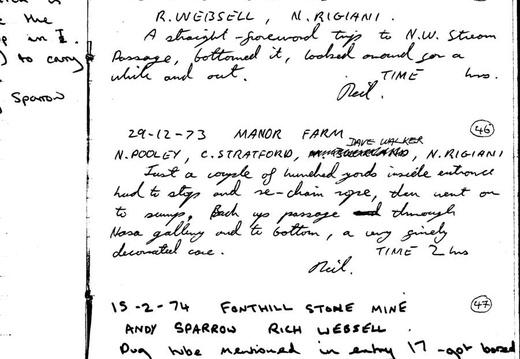 the
in I.
) to carry
Sparrow
R. WEBSELL, N. RIGIANI.
A straight-foreword trip to N.W. Stream
Passage, bottomed it, looked around for a
while and out. TIME hrs.
Neil.
29-12-73 MANOR FARM 46
DAVE WALKER
N. POOLEY, C. STRATFORD, N. RIGIANI
Just a couple of hundred yards inside entrance
had to stop and re-chain rope, then went on
to sump. Back up passage through
Nasa gallery and to bottom, a very finely
decorated cave. TIME 2 hrs
Neil.
15-2-74 FONTHILL STONE MINE 47
ANDY SPARROW RICH WEBSELL
Dug tube mentioned in entry 17 - got bored